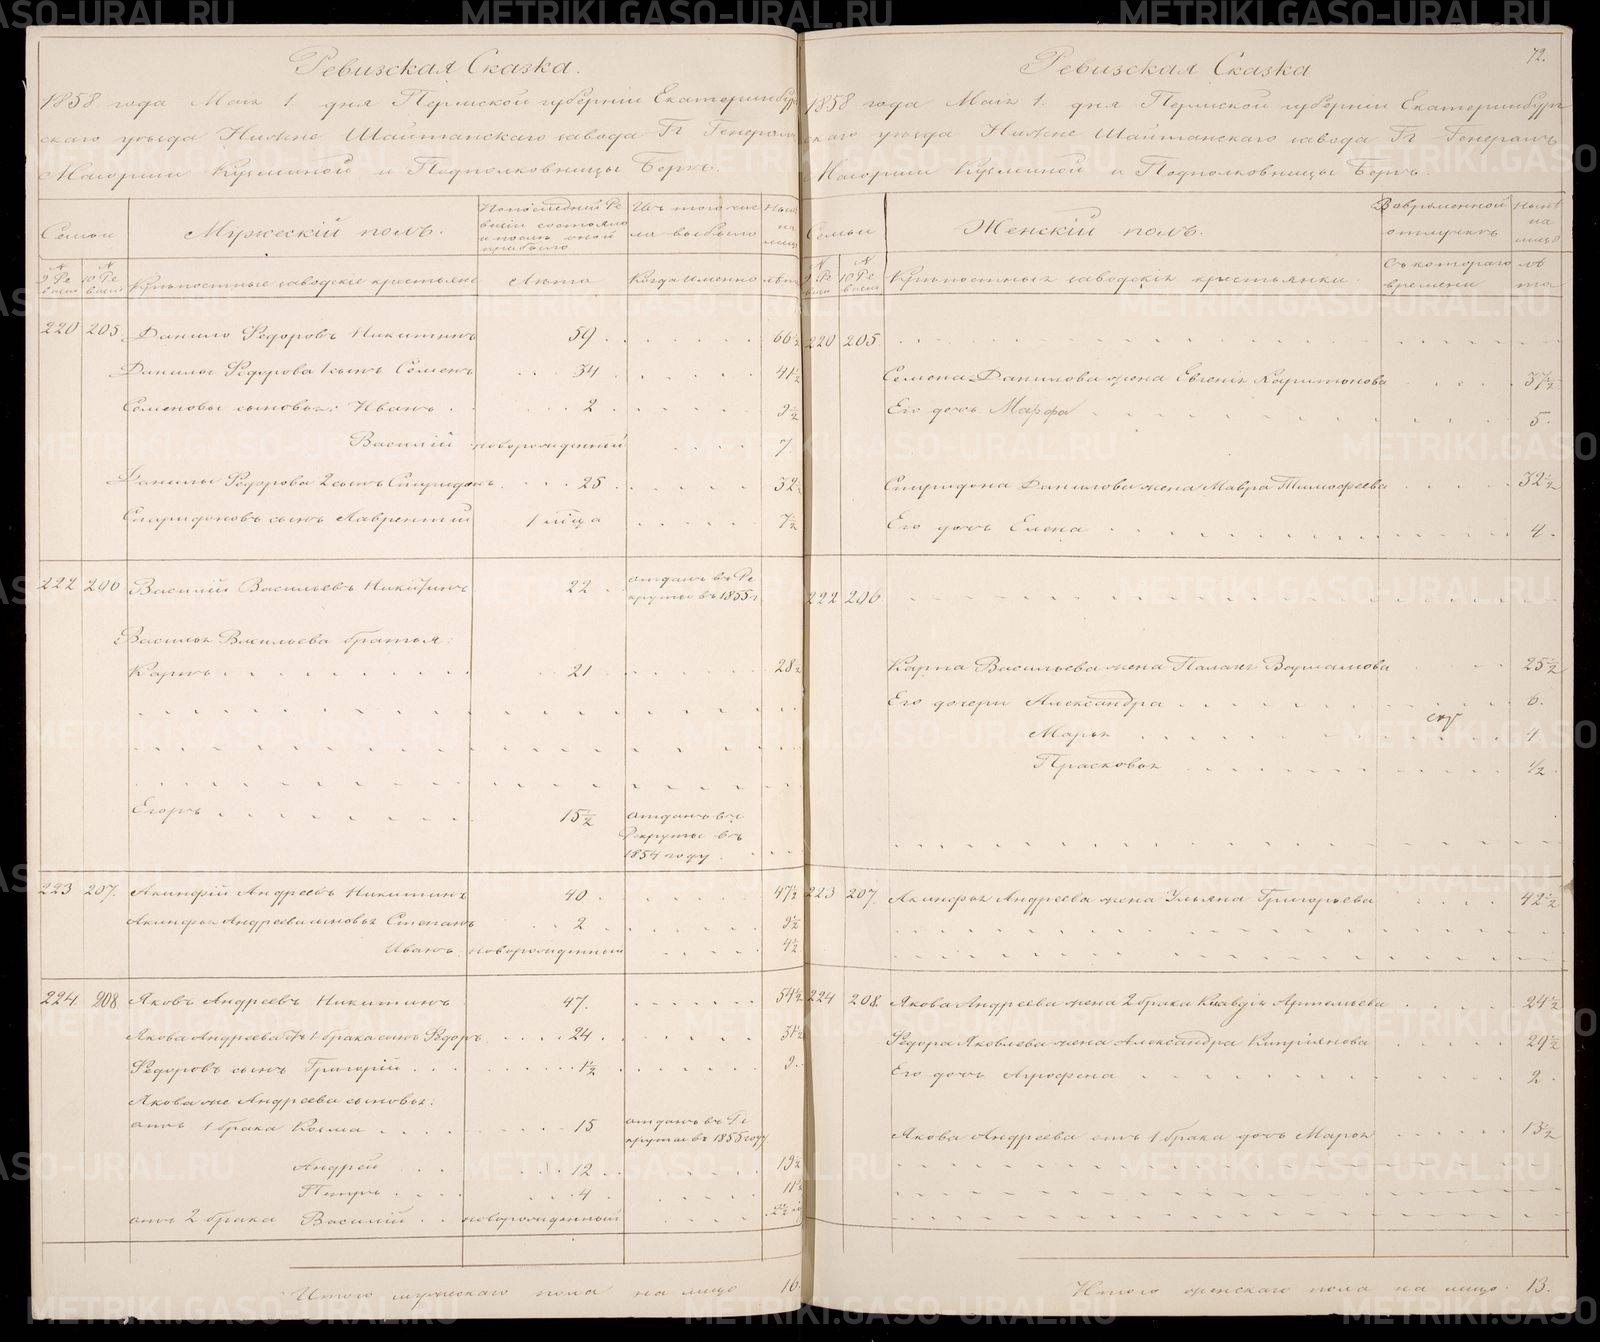 Ревизская Сказка.
1858 года Маія 1. дня Пермской губерніи Екатеринбург
скаго уѣзда Нижне Шайтанскаго завода Гг Генералъ
Маіорши Кузьминой и Подполковницы Бергъ.
Семьи
Мужескій полъ.
По последней Ре
визіи состояло
и после оной
прибыло
Изъ того чис
ла выбыло
Ныне
на
лицо
№ 9 Ре
визіи
№ 10 Ре
визіи
Крѣпостные заводскіе крестьяне
Лѣта
Когда именно
лѣта
220 205. Данило Федоровъ Никитинъ 59 66½
Данилы Федорова 1 сынъ Семенъ 34 41½
Семеновы сыновья: Иванъ 2 9½
Василій новорожденный 7
Данилы Федорова 2 сынъ Спиридонъ 25 32½
Спиридоновъ сынъ Лаврентій 1 мѣца 7½
222 206 Василій Васильевъ Никитинъ 22 отданъ въ Ре
круты въ 1855 г
Василья Васильева братья:
Карпъ 21 28½
Егоръ 15½ отданъ въ
Рекруты въ
1854 году.
223 207. Акинфій Андреевъ Никитинъ 40 47½
Акинфья Андреева сыновья Степанъ 2 9½
Иванъ новорожденный 4½
224 208 Яковъ Андреевъ Никитинъ 47. 54½
Якова Андреева отъ 1 брака сынъ Федоръ 24 31½
Федоровъ сынъ Григорій 1½ 9
Якова же Андреева сыновья:
отъ 1 брака Козма 15 отданъ въ Ре
круты въ 1855 году
Андрей 12 19½
Петръ 4 11½
отъ 2 брака Василій новорожденный 2½
Итого мужескаго пола на лицо 16.
72.
Ревизская Сказка
1858 года Маія 1. дня Пермской губерніи Екатеринбург
скаго уѣзда Нижне Шайтанскаго завода Гг Генералъ
Маіорши Кузьминой и Подполковницы Бергъ.
Семьи
Женскій полъ.
Во временной
отлучкѣ
Нынѣ
на
лицо
№ 9 Ре
визіи
№ 10 Ре
визіи
Крѣпостныхъ заводскія крестьянки
Съ котораго
времени
лѣ
та
220 205.
Семена Данилова жена Евгенія Харитонова 37½
Его дочь Марфа 5.
Спиридона Данилова жена Мавра Тимофеева 32½
Его дочь Елена 4.
222 206
Карпа Васильева жена Палагея Варламова 25½
Его дочери Александра 6.
Марья 4
Прасковья ½.
223 207. Акинфья Андреева жена Ульяна Григорьева 42½
224 208. Якова Андреева жена 2 брака Клавдія Артемьева 24½
Федора Яковлева жена Александра Кипріянова 29½
Его дочь Агрофена 2.
Якова Андреева отъ 1 брака дочь Марья 13½
Итого женскаго пола на лицо. 13.
METRIKI.GASO-URAL.RU